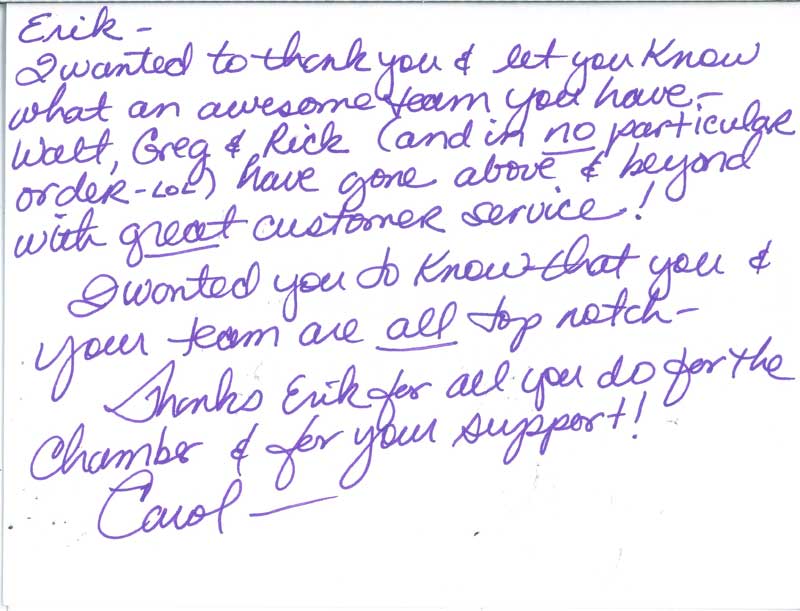 Erik -
I wanted to thank you & let you know
what an awesome team you have -
Walt, Greg & Rick (and in no particular
order - LOL) have gone above & beyond
with great customer service!
I wanted you to know that you &
your team are all top notch -
Thanks Erik for all you do for the
Chamber & for your support!
Carol —